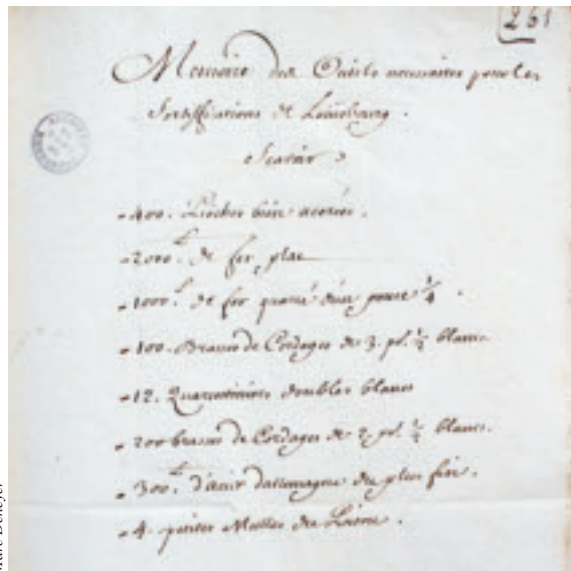 261
Memoire des Outils necessaires pour les
fortiffications de Louisbourg.
Scavoir
400. Pioches bien acerées.
2000.# de fer plat
1000.# de fer quarré d'un pouce 1/4.
100. Brasses de Cordages de 3. po. 1/2 blanc.
12. doubles blancs
200 brasses de Cordages de 2 po. 1/2 blanc.
300.# d'acier dallemagne du plus fin.
4. petites Meules de
Marc Denoyer